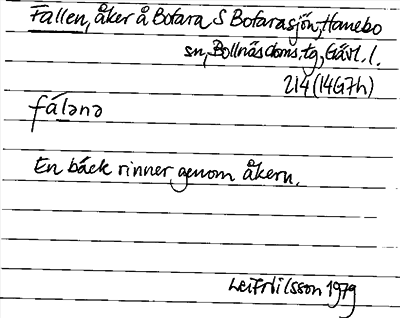 Fallen, åker å Bofara S Bofarasjön, Hanebo
sn, Bollnäs doms.tg, Gävl. l.
214 (14G7h)
fáləna
En bäck rinner genom åkern.
Leif Nilsson 1979